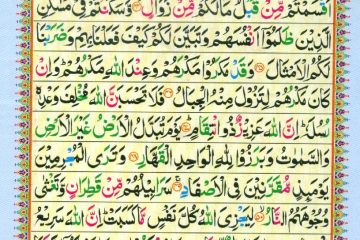 قَسَمْتُمْ مِّنْ قَبْلُ مَا لَكُمْ مِّنْ زَوَالٍ ﴿٤٤﴾ وَّسَكَنْتُمْ فِيْ مَسٰكِنِ
الَّذِيْنَ ظَلَمُوْۤا اَنْفُسَهُمْ وَتَبَيَّنَ لَكُمْ كَيْفَ فَعَلْنَا بِهِمْ وَضَرَبْنَا
لَكُمُ الْاَمْثَالَ ﴿٤٥﴾ وَقَدْ مَكَرُوْا مَكْرَهُمْ وَعِنْدَ اللّٰهِ مَكْرُهُمْ وَاِنْ
كَانَ مَكْرُهُمْ لِتَزُوْلَ مِنْهُ الْجِبَالُ ﴿٤٦﴾ فَلَا تَحْسَبَنَّ اللّٰهَ مُخْلِفَ وَعْدِهٖ
رُسُلَهٗ اِنَّ اللّٰهَ عَزِيْزٌ ذُو انْتِقَامٍ ﴿٤٧﴾ يَوْمَ تُبَدَّلُ الْاَرْضُ غَيْرَ الْاَرْضِ
وَالسَّمٰوٰتُ وَبَرَزُوْا لِلّٰهِ الْوَاحِدِ الْقَهَّارِ ﴿٤٨﴾ وَتَرَى الْمُجْرِمِيْنَ
يَوْمَئِذٍ مُّقَرَّنِيْنَ فِي الْاَصْفَادِ ﴿٤٩﴾ سَرَابِيْلُهُمْ مِّنْ قَطِرَانٍ وَّتَغْشٰى
وُجُوْهَهُمُ النَّارُ ﴿٥٠﴾ لِيَجْزِيَ اللّٰهُ كُلَّ نَفْسٍ مَّا كَسَبَتْ اِنَّ اللّٰهَ سَرِيْعُ